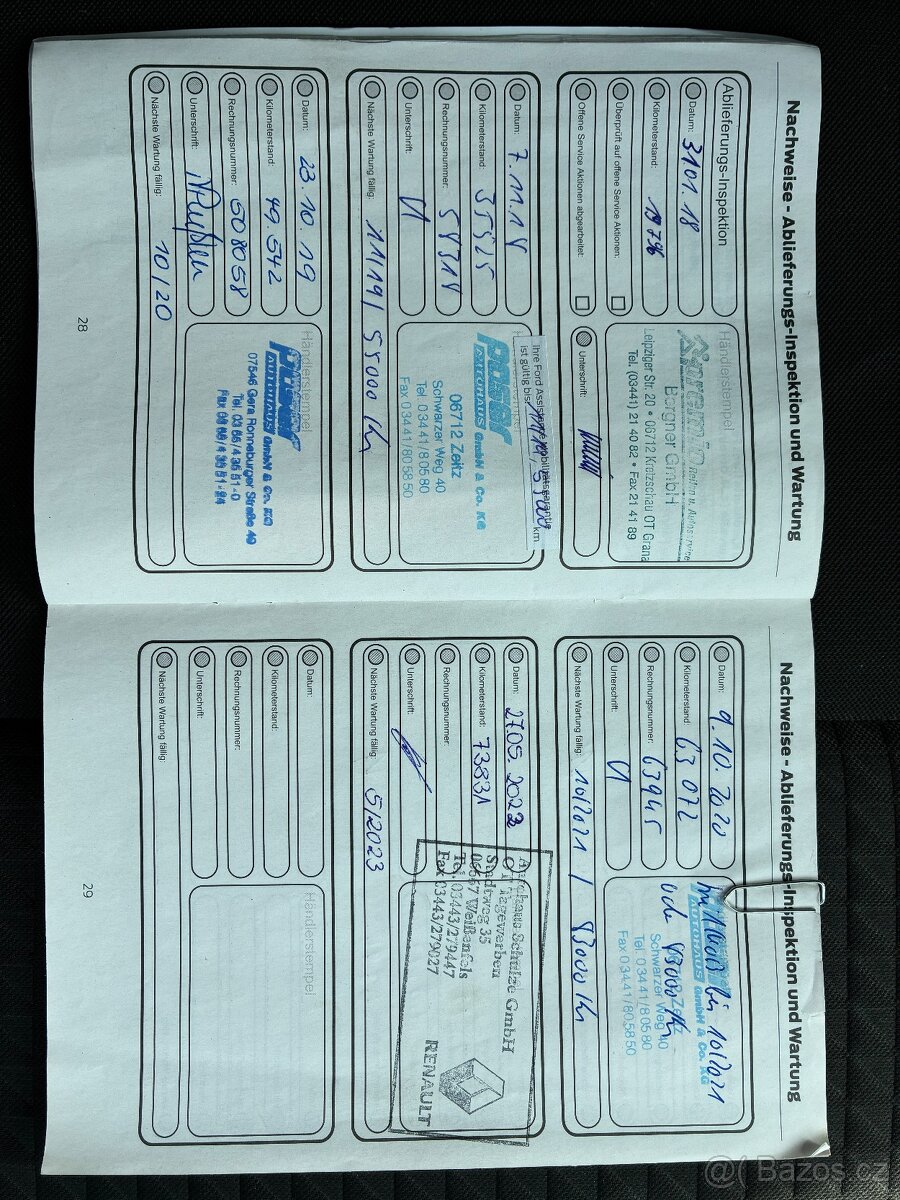 Nachweise - Ablieferungs-Inspektion und Wartung
Ablieferungs-Inspektion
Datum: 31.01.18
Kilometerstand:
Überprüft auf offene Service Aktionen:
Offene Service Aktionen abgearbeitet:
Händlerstempel
Reifen u. Autoservice
Bergner GmbH
Leipziger Str. 20 • 06712 Kretzschau OT Grana
Tel. (03441) 21 40 82 • Fax 21 41 89
Unterschrift:
Datum: 7.11.18
Kilometerstand: 35525
Rechnungsnummer:
Unterschrift:
Nächste Wartung fällig: 11/19/ 55000 Km
Ihre Ford Assistance Mobilitätsgarantie
ist gültig bis/ km
AUTOHAUS GmbH & Co. KG
06712 Zeitz
Schwarzer Weg 40
Tel. 0 34 41/8 05 80
Fax 0 34 41/80 58 50
Datum: 23.10.19
Kilometerstand: 49.542
Rechnungsnummer: 508058
Unterschrift:
Nächste Wartung fällig: 10/20
Händlerstempel
AUTOHAUS GmbH & Co. KG
07546 Gera Ronneburger Straße 40
28
Nachweise - Ablieferungs-Inspektion und Wartung
Datum: 9.10.2020
Kilometerstand: 63 072
Rechnungsnummer: 63945
Unterschrift:
Nächste Wartung fällig: 10/2021 / 83000 Km
bis 10/2021
AUTOHAUS GmbH & Co. KG
Zeitz
Schwarzer Weg 40
Tel. 0 34 41/8 05 80
Fax 0 34 41/80 58 50
Datum: 27.05.2022
Kilometerstand: 73831
Rechnungsnummer:
Unterschrift:
Nächste Wartung fällig: 5/2023
Autohaus Schulze GmbH
OT Tagewerben
Stadtweg 35
06667 Weißenfels
Tel. 03443/279447
Fax 03443/279027
RENAULT
Datum:
Kilometerstand:
Rechnungsnummer:
Unterschrift:
Nächste Wartung fällig:
Händlerstempel
29
@( Bazos.cz